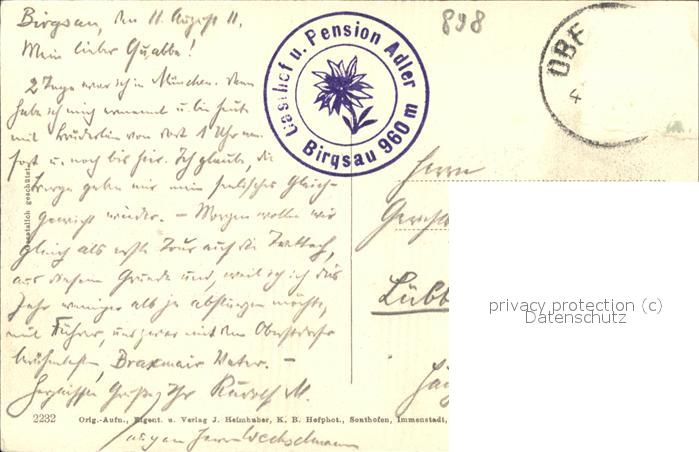 Birgsau, den 11. August 11.
Mein lieber Quabbe!
2 Tage war ich in München. Dann
habe ich mich ermannt u. bin heute
mit von dort 1 Uhr
fort u. noch bis hier. Ich glaube, die
Berge geben mir mein seelisches Gleich-
gewicht wieder. – Morgen wollen wir
gleich als erste Tour auf die Trettach,
aus diesem Grunde und, weil ich dies
Jahr weniger als je abstürzen möchte,
mit Führer, und zwar mit dem Oberstdorfer
berühmtesten, Braxmair Vater. –
Herzlichsten Gruß Ihr Rudolf M.
Gasthof u. Pension Adler
Birgsau 960 m
898
OBE
4
Herrn
Lübb
privacy protection (c)
Datenschutz
gesetzlich geschützt
2232 Orig.-Aufn., Eigent. u. Verlag J. Heimhuber, K. B. Hofphot., Sonthofen, Immenstadt,
Wechselmann